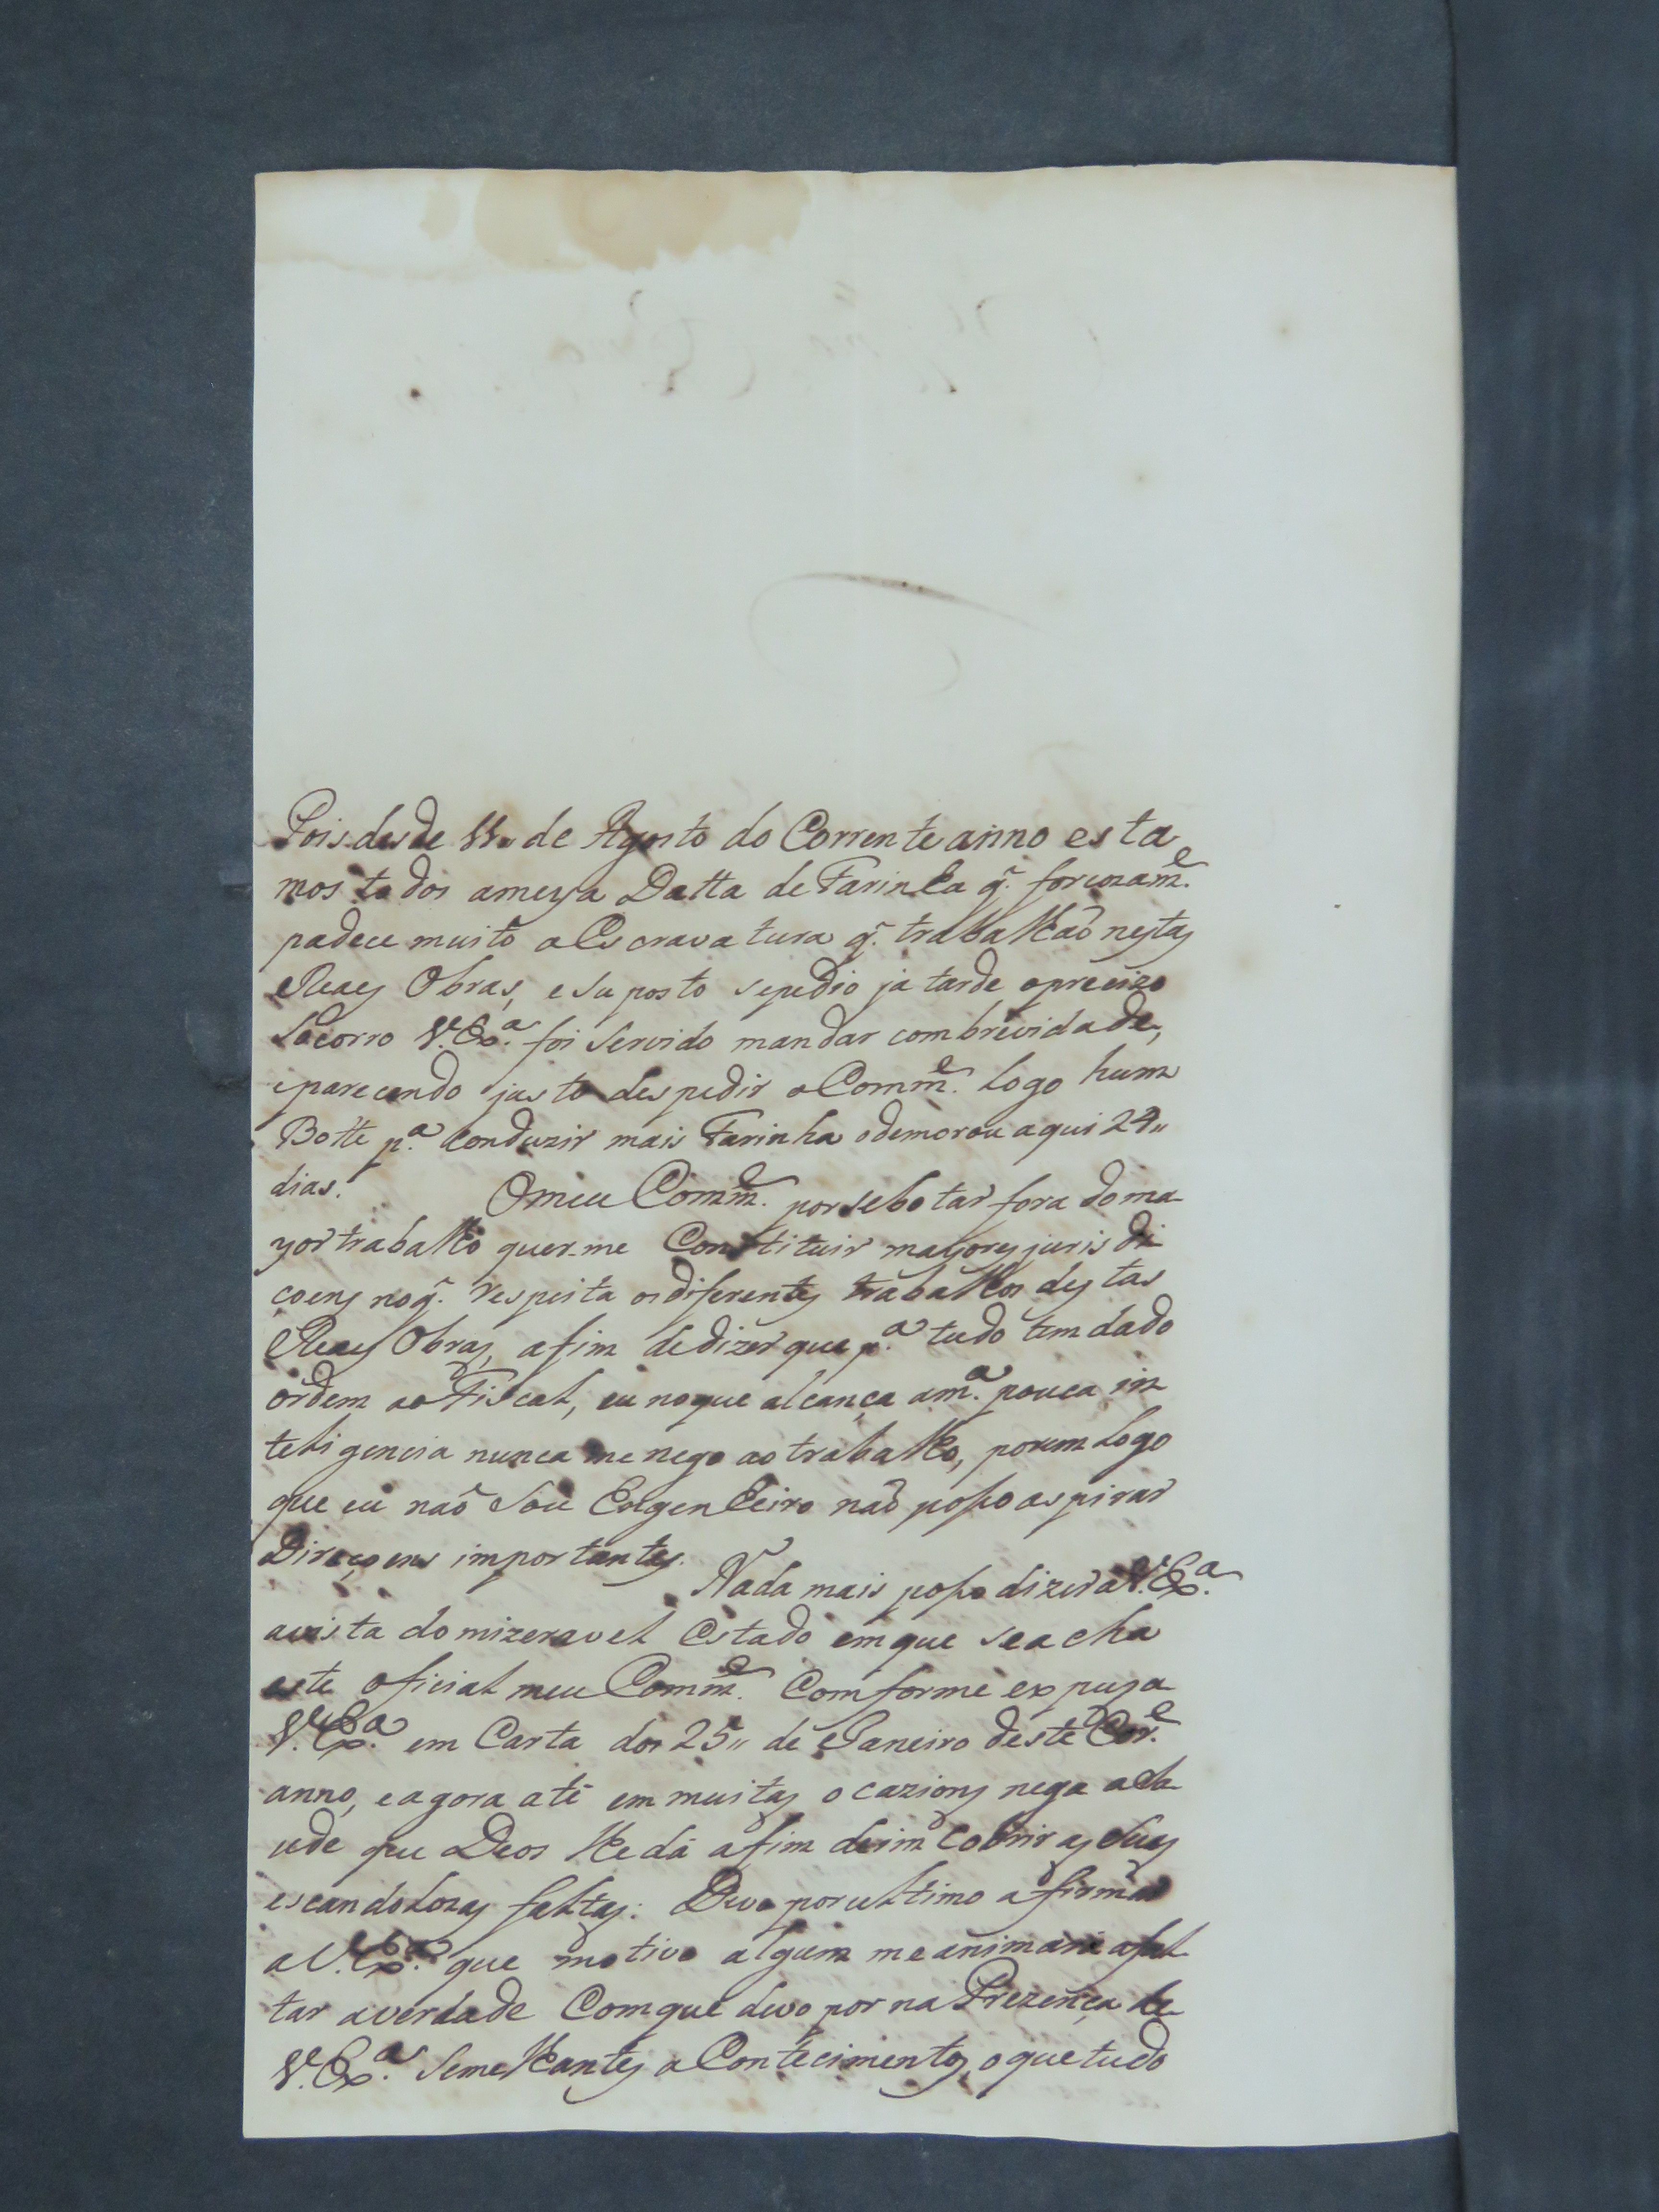 Pois desde 11,, de Agosto do Corrente anno esta
mos todos ameya Datta de Farinha q̃. forçozam.e
padece muito a Escravatura q̃. trabalhaõ nestas
Reaes Obras, e suposto sepedio ja tarde oprecizo
Socorro V.Ex.a foi Servido mandar combrevidade,
eparecendo justo despedir o Comm.e logo hum
Botte p.a Conduzir mais Farinha odemorou aqui 24,,
dias. Omeu Comm.e por sebotar fora doma
yor trabalho quer-me Constituir mayores jurisdi
coens noq̃. respeita osdiferentes trabalhos destas
Reaes Obras, afim dedizer que p.a tudo tem dado
ordem ao Fiscal, eu noque alcança am.a pouca in
teligencia nunca me nego ao trabalho, porem logo
que eu naõ Sou Engenheiro naõ posso aspirar
Direçoens importantes.
Nada mais posso dizer a V.Ex.a
avista domizeravel Estado emque seacha
este oficial meu Comm.e Comforme expuz a
V.Ex.a em Carta dos 25,, de Janeiro deste Cor.e
anno, eagora até em muitas ocazions nega a Sa
ude que Deos lhe dá afim de im cobrir as Suas
escandolozas faltas: Devo por ultimo afirmar
a V.Ex.a que motivo algum me animara afal
tar averdade Comque devo por na Prezença de
V.Ex.a Semelhantes a Contecimentos, oque tudo